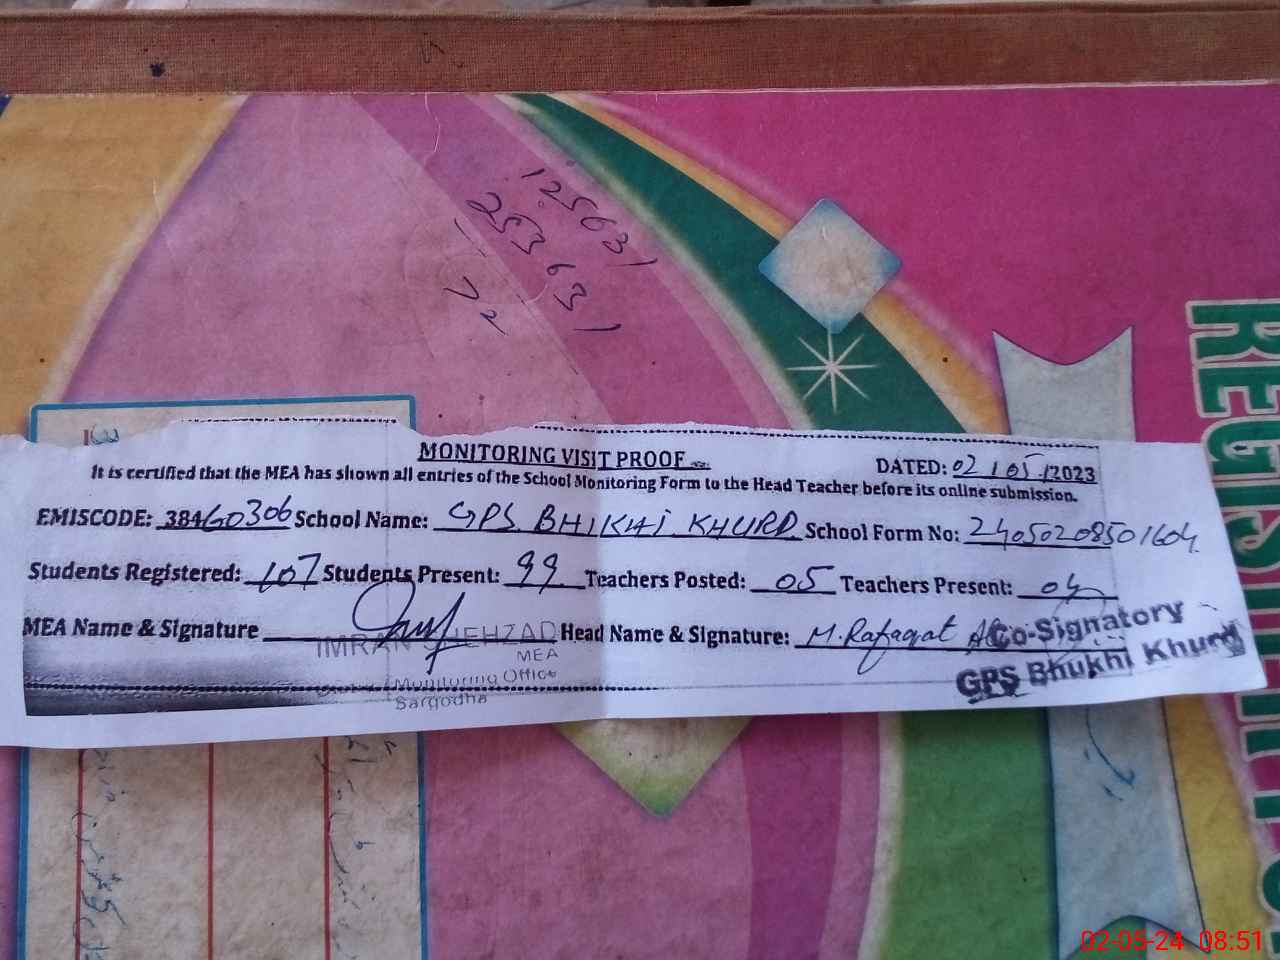 12563/
25363/
REGISTER
MONITORING VISIT PROOF
DATED: 02/05/2023
It is certified that the MEA has shown all entries of the School Monitoring Form to the Head Teacher before its online submission.
EMISCODE: 38460306 School Name: GPS BHIKHI KHURD School Form No: 24050208501604
Students Registered: 107 Students Present: 99 Teachers Posted: 05 Teachers Present: 04
MEA Name & Signature Head Name & Signature: M. Rafaqat Ali
IMRAN SHEHZAD
MEA
Monitoring Office
Sargodha
Co-Signatory
GPS Bhukhi Khurd
02-05-24 08:51